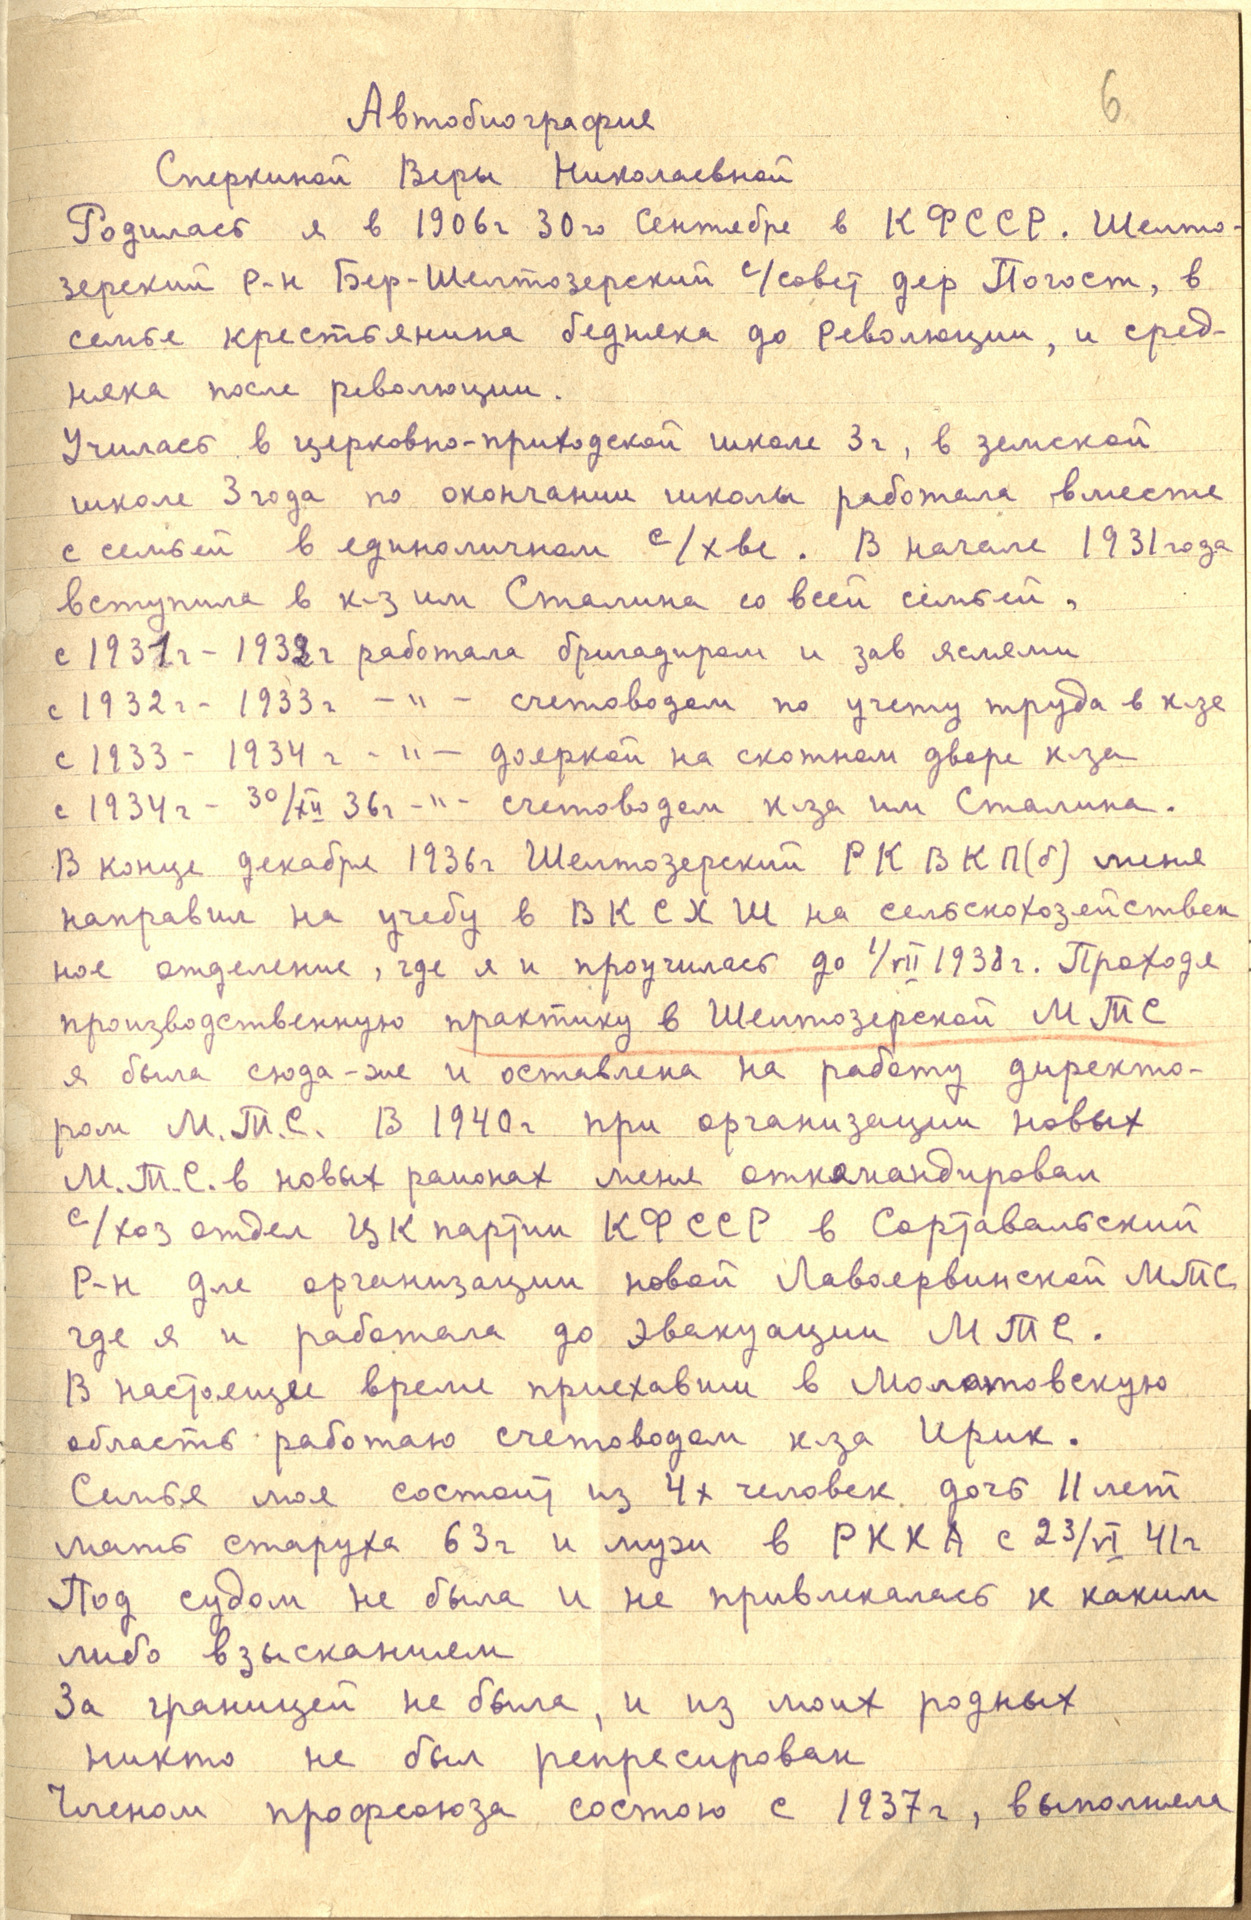 6
Автобиография
Сперкиной Веры Николаевной
Родилась я в 1906г 30го Сентября в КФССР. Шелто-
зерский р-н Бер-Шелтозерский с/совет дер Погост, в
семье крестьянина бедняка до революции, и серед-
няка после революции.
Училась в церковно-приходской школе 3г, в земской
школе 3 года по окончании школы работала вместе
с семьей в единоличном с/хве. В начале 1931 года
вступила в к-з им Сталина со всей семьей,
с 1931г - 1932г работала бригадиром и зав яслями
с 1932г - 1933г -"- счетоводом по учету труда в к-зе
с 1933 - 1934г -"- дояркой на скотном дворе к-за
с 1934г - 30/XII 36г -"- счетоводом к-за им Сталина.
В конце декабря 1936г Шелтозерский РК ВКП(б) меня
направил на учебу в ВКСХШ на сельскохозяйствен
ное отделение, где я и проучилась до 1/VII 1938г. Проходя
производственную практику в Шелтозерской МТС
я была сюда-же и оставлена на работу директо-
ром М.Т.С. В 1940г при организации новых
М.Т.С. в новых районах меня откомандировал
с/хоз отдел ЦК партии КФССР в Сортавальский
р-н для организации новой Лавоярвинской МТС
где я и работала до эвакуации МТС.
В настоящее время приехавши в Молотовскую
область работаю счетоводом к-за Ирик.
Семья моя состоит из 4х человек дочь 11 лет
мать старуха 63г и муж в РККА с 23/VI 41г
Под судом не была и не привлекалась к каким
либо взысканиям
За границей не была, и из моих родных
никто не был репресирован
Членом профсоюза состою с 1937г, выполняла